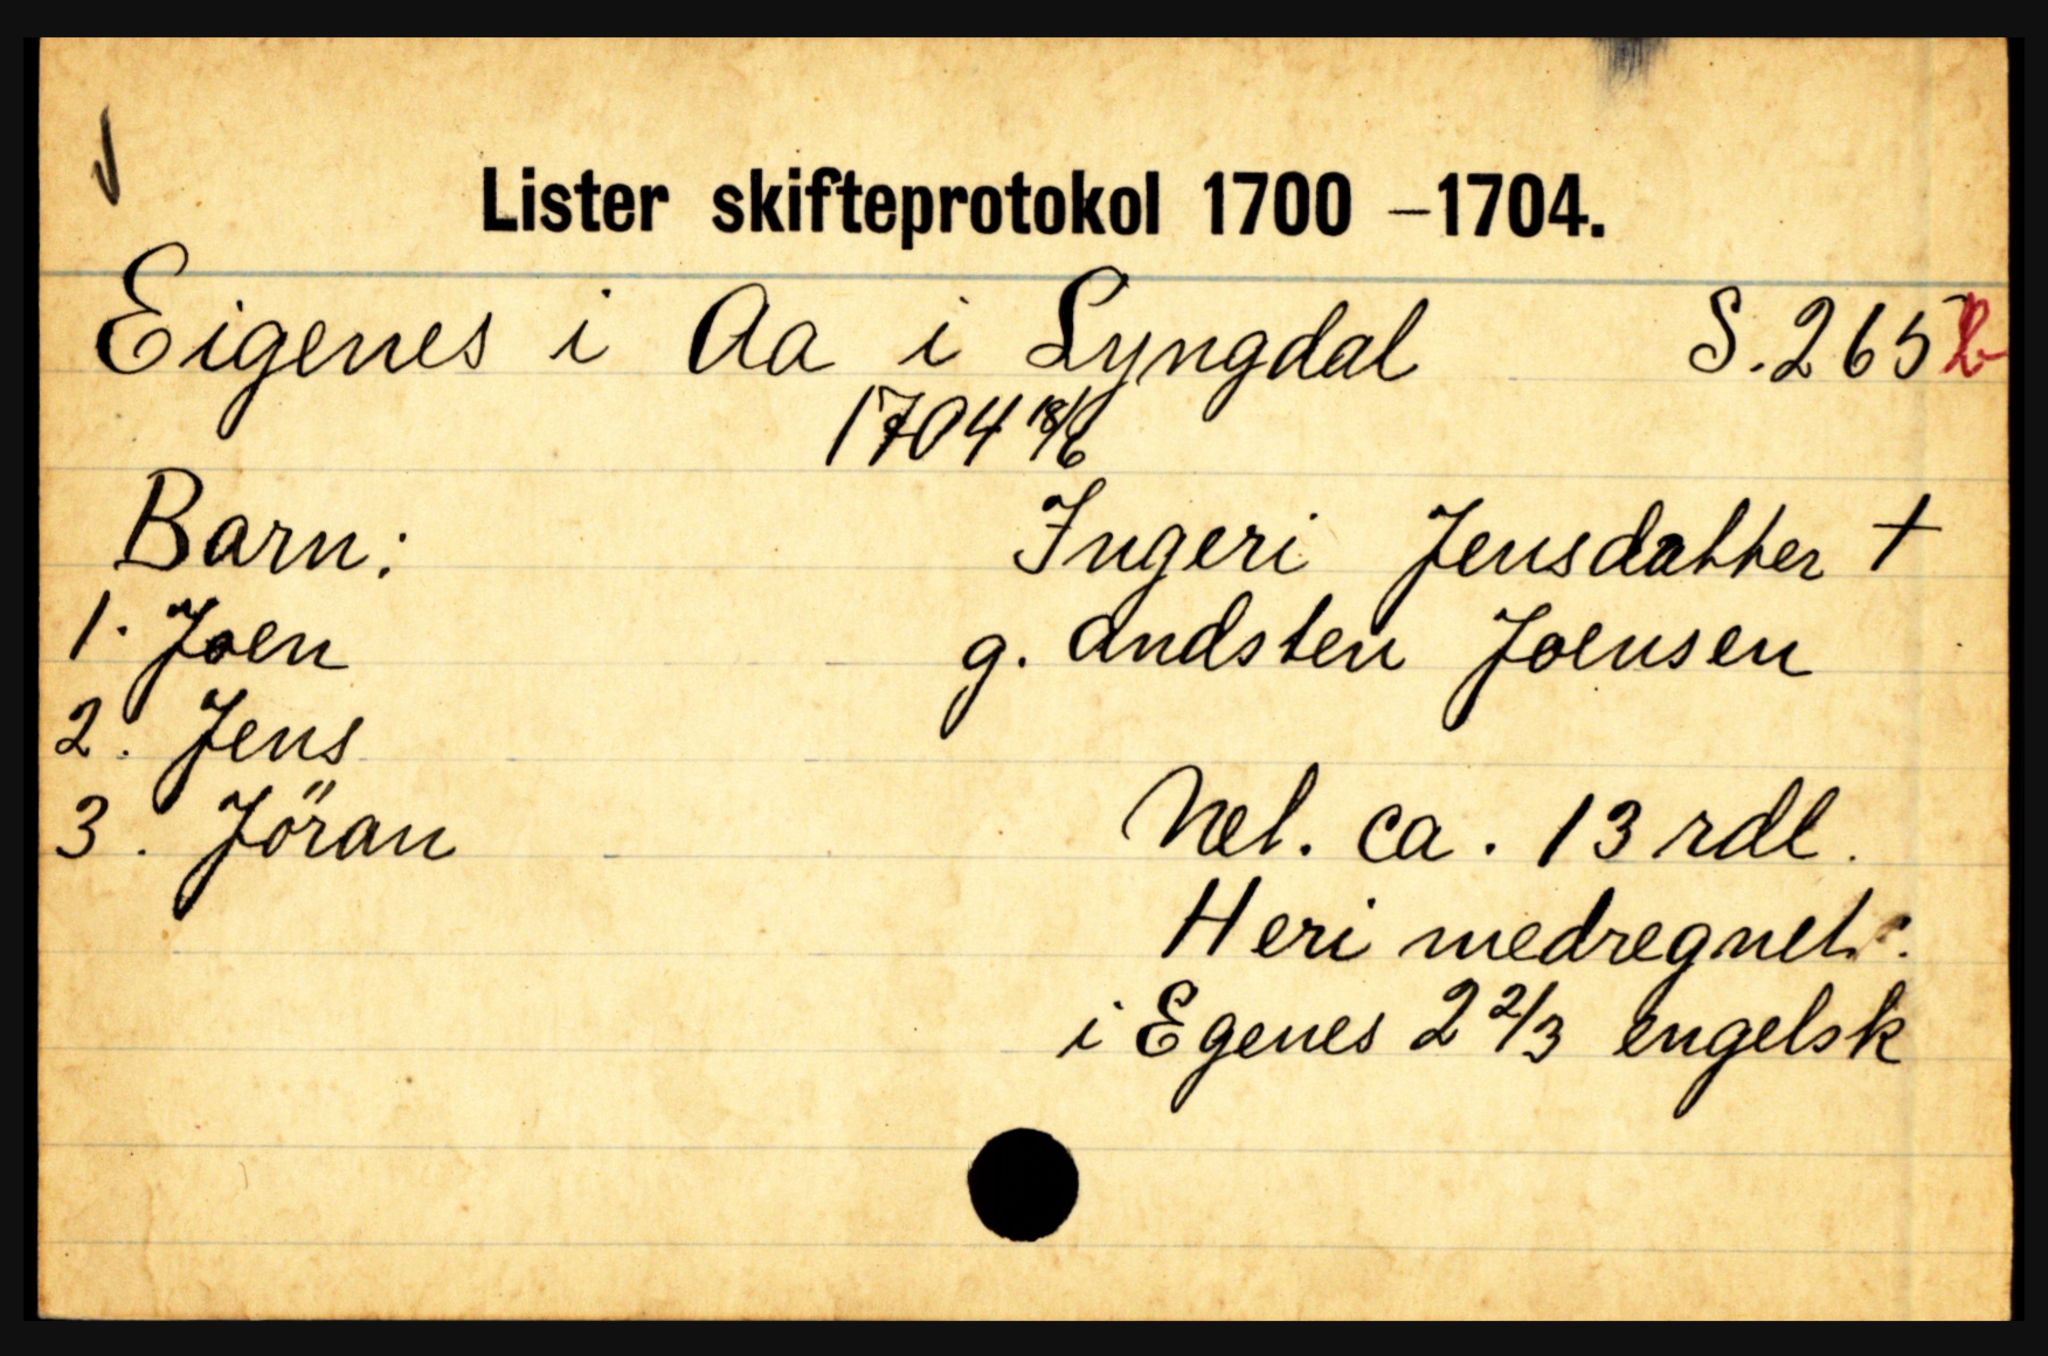 Lister skifteprotokol 1700 – 1704.
Eigenes i Aa i Lyngdal S. 265 b
1704 18/6
Barn: Ingeri Jensdatter †
1. Joen g. Andsten Joensen
2. Jens
3. Jöran Net. ca. 13 rdl.
Heri medregnet.
i Egenes 2 2/3 engelsk